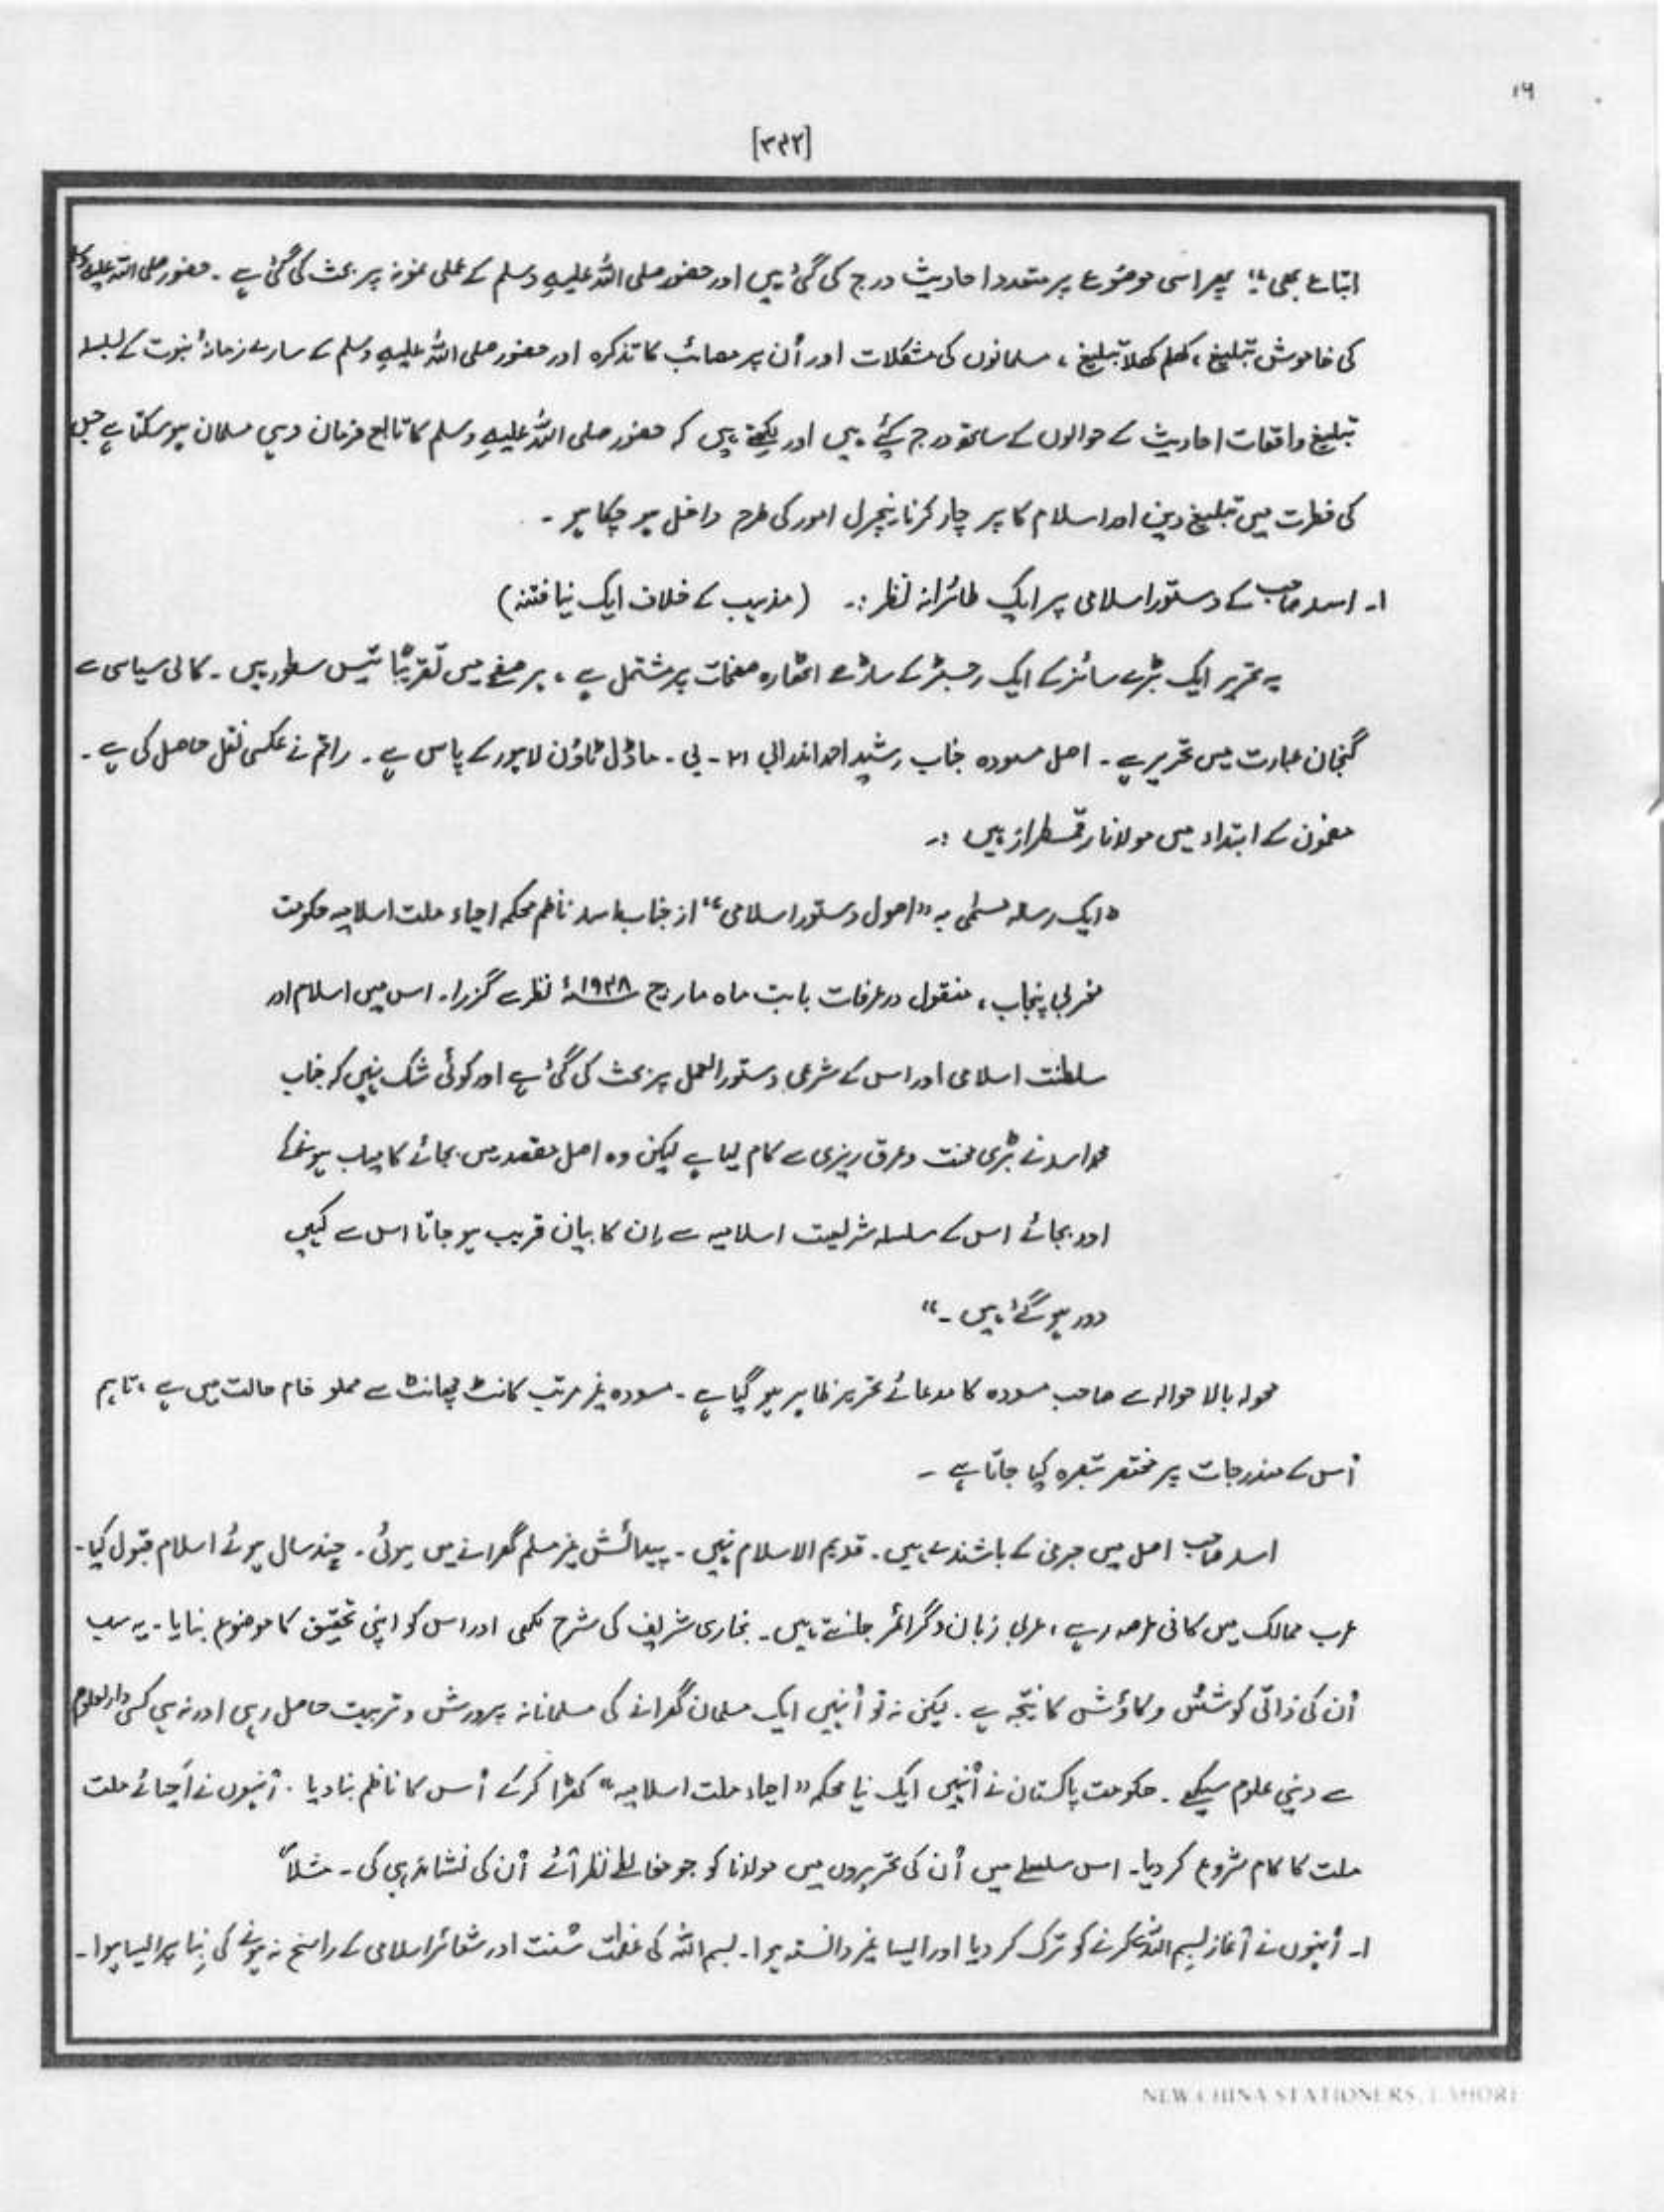 ۱۶
[۳۴۲]
اتباع بھی"؛ پھر اسی موضوع پر متعدد احادیث درج کی گئی ہیں اور حضور صلی اللہ علیہ وسلم کے عملی نمونہ پر بحث کی گئی ہے ۔ حضور صلی اللہ علیہ وسلم
کی خاموش تبلیغ ، کھلم کھلا تبلیغ ، مسلمانوں کی مشکلات اور اُن پر مصائب کا تذکرہ اور حضور صلی اللہ علیہ وسلم کے سارے زمانۂ نبوت کے بسلسلہ
تبلیغ واقعات احادیث کے حوالوں کے ساتھ درج کئے ہیں اور لکھتے ہیں کہ حضور صلی اللہ علیہ وسلم کا تابع فرمان وہی مسلمان ہو سکتا ہے جس
کی فطرت میں تبلیغ دین اور اسلام کا پرچار کرنا نیچرل امور کی طرح داخل ہو چکا ہو ۔
۱۔ اسد صاحب کے دستور اسلامی پر ایک طائرانہ نظر :۔ (مذہب کے خلاف ایک نیا فتنہ)
یہ تحریر ایک بڑے سائز کے ایک رجسٹر کے ساڑھے اٹھارہ صفحات پر مشتمل ہے ، ہر صفحے میں تقریباً تیس سطور ہیں ۔ کالی سیاہی سے
گنجان عبارت میں تحریر ہے ۔ اصل مسودہ جناب رشید احمد اندرابی ۲۱ ۔ بی ۔ ماڈل ٹاؤن لاہور کے پاس ہے ۔ راقم نے عکسی نقل حاصل کی ہے ۔
مضمون کے ابتداء میں مولانا رقمطراز ہیں :۔
"ایک رسالہ مسمٰی بہ "اصول دستور اسلامی" از جناب اسد ناظم محکمہ احیاء ملت اسلامیہ حکومت
مغربی پنجاب ، منقول در عرفات بابت ماہ مارچ ۱۹۴۸ء نظر سے گزرا۔ اس میں اسلام اور
سلطنت اسلامی اور اس کے شرعی دستور العمل پر بحث کی گئی ہے اور کوئی شک نہیں کہ جناب
محمد اسد نے بڑی محنت و عرق ریزی سے کام لیا ہے لیکن وہ اصل مقصد میں بجائے کامیاب ہونے کے
اور بجائے اس کے سلسلہ شریعت اسلامیہ سے اِن کا بیان قریب ہو جاتا اس سے کہیں
دور ہو گئے ہیں ۔"
محولہ بالا حوالہ سے صاحب مسودہ کا مدعائے تحریر ظاہر ہو گیا ہے ۔ مسودہ غیر مرتب کانٹ چھانٹ سے مملو خام حالت میں ہے ، تاہم
اُس کے مندرجات پر مختصر تبصرہ کیا جاتا ہے ۔
اسد صاحب اصل میں جرمنی کے باشندے ہیں ۔ قدیم الاسلام نہیں ۔ پیدائش غیر مسلم گھرانے میں ہوئی ۔ چند سال ہوئے اسلام قبول کیا ۔
عرب ممالک میں کافی عرصہ رہے ، عربی زبان و گرائمر جانتے ہیں ۔ بخاری شریف کی شرح لکھی اور اس کو اپنی تحقیق کا موضوع بنایا ۔ یہ سب
اُن کی ذاتی کوشش و کاوش کا نتیجہ ہے ۔ لیکن نہ تو اُنہیں ایک مسلمان گھرانے کی مسلمانانہ پرورش و تربیت حاصل رہی اور نہ ہی کسی دارلعلوم
سے دینی علوم سیکھے ۔ حکومت پاکستان نے اُنہیں ایک نیا محکمہ "احیاء ملت اسلامیہ" کھڑا کر کے اُس کا ناظم بنا دیا ۔ اُنہوں نے اَحیائے ملت
ملت کا کام شروع کر دیا ۔ اس سلسلے میں اُن کی تحریروں میں مولانا کو جو مغالطے نظر آئے اُن کی نشاندہی کی ۔ مثلاً
۱۔ اُنہوں نے آغاز بسم اللہ کرنے کو ترک کر دیا اور ایسا غیر دانستہ ہوا ۔ بسم اللہ کی عظمت سُنت اور شعائر اسلامی کے راسخ نہ ہونے کی بِنا پر ایسا ہوا ۔
NEW CHINA STATIONERS, LAHORE